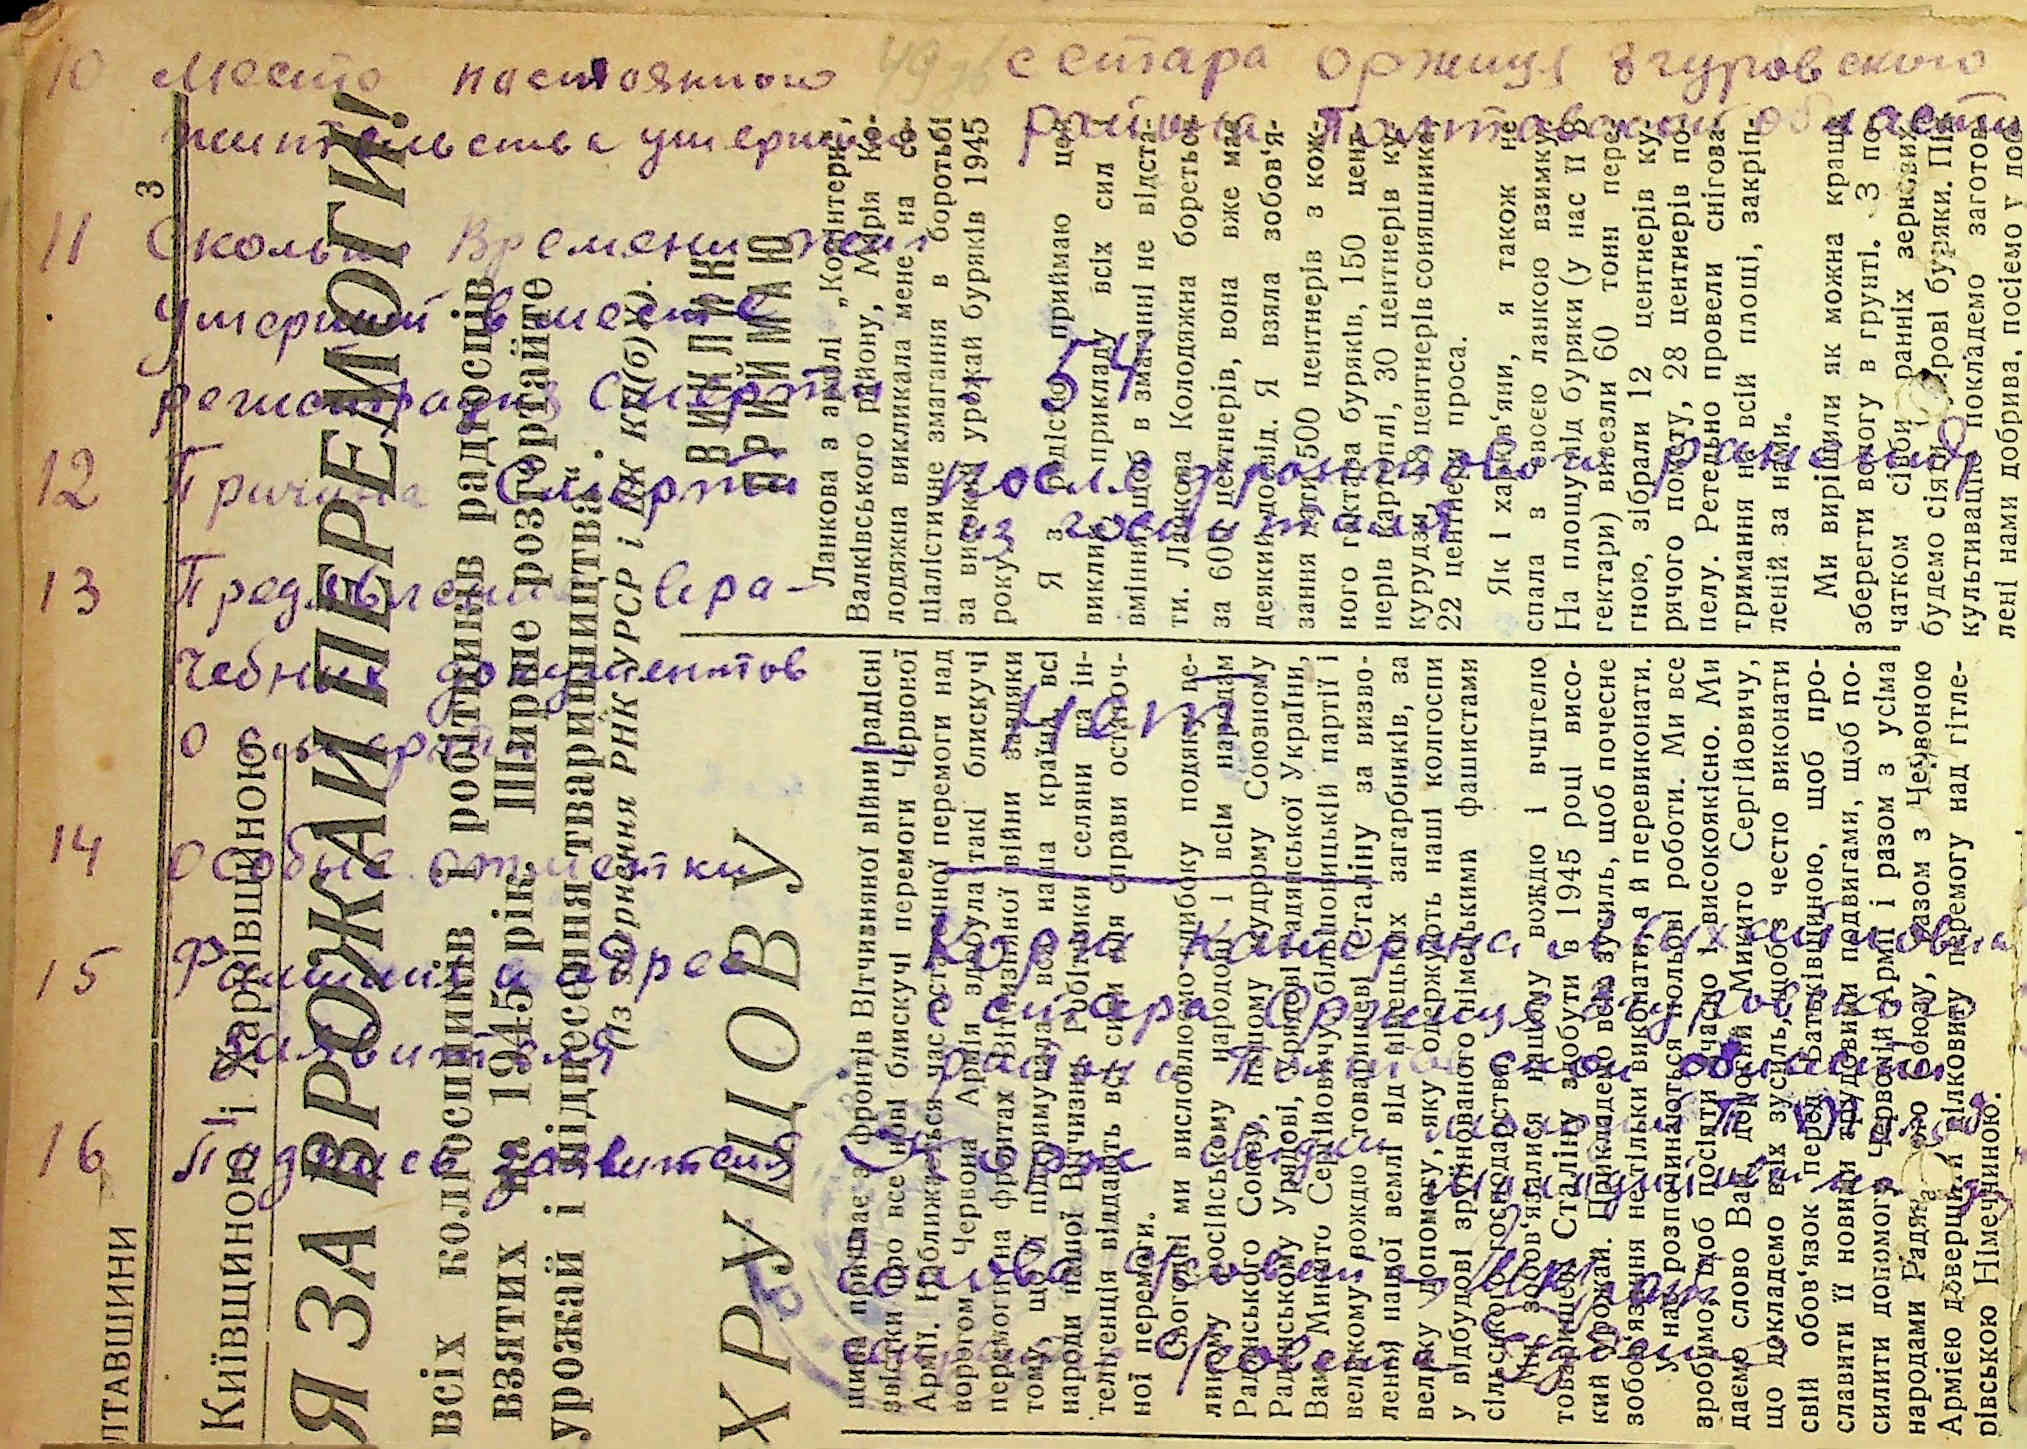 10 Место постояного с стара оржиця згуровского
жительства умершего района Полтавской области
11 Сколько Времени жил
умерший в месте
регистрации Смерти 54
12 Причина Смерти после фронтового ранения
из госпиталя
13 Предъявлении вра-
чебных документов нет
о смерти
14 особые отметки
15 Фамилия и адрес Корж Катерина Михайловна
с стара Оржиця згуровского
заявителя района Полтавской области
16 Подпись заявителя Корж
голова
секретарь
3
ЛТАВЩИНИ
Київщиною і Харківщиною
Я ЗА ВРОЖАЙ ПЕРЕМОГИ!
всіх колгоспників і робітників радгоспів
взятих на 1945 рік. Ширше розгортайте
урожай і піднесення тваринництва".
(Із звернення РНК УРСР і ЦК КП(б)У).
ХРУЩОВУ
звістки про все нові блискучі перемоги Червоної
Армії. Наближається час остаточної перемоги над
ворогом. Червона Армія здобула такі блискучі
перемоги на фронтах Вітчизняної війни завдяки
тому, що її підтримувала вся наша країна, всі
народи нашої Вітчизни. Робітники, селяни та ін-
телігенція віддають всі сили для справи остаточ-
ної перемоги.
Сьогодні ми висловлюємо глибоку подяку ве-
ликому російському народові і всім народам
Радянського Союзу, нашому мудрому Союзному
Радянському Урядові, Урядові Радянської України,
Вам, Микито Сергійовичу, більшовицькій партії і
великому вождю товаришеві Сталіну за визво-
лення нашої землі від німецьких загарбників, за
велику допомогу, яку одержують наші колгоспи
у відбудові зруйнованого німецькими фашистами
сільського господарства.
Ми зобов'язалися нашому вождю і вчителю
товаришеві Сталіну здобути в 1945 році висо-
кий урожай. Прикладемо всіх зусиль, щоб почесне
зобов'язання не тільки виконати, а й перевиконати.
У нас розпочинаються польові роботи. Ми все
зробимо, щоб посіяти вчасно і високоякісно. Ми
даємо слово Вам, дорогий Микито Сергійовичу,
що докладемо всіх зусиль, щоб з честю виконати
свій обов'язок перед Батьківщиною, щоб про-
славити її новими трудовими подвигами, щоб по-
силити допомогу Червоній Армії і разом з усіма
народами Радянського Союзу, разом з Червоною
Армією довершити відповідну перемогу над гітле-
рівською Німеччиною.
ВИКЛИК
ПРИЙМАЮ
Ланкова з артілі „Комінтерн",
Валківського району, Марія Ко-
лодяжна викликала мене на со-
ціалістичне змагання в боротьбі
за високий урожай буряків 1945
року.
Я з радістю приймаю цей
виклик і прикладу всіх сил і
вміння, щоб в змаганні не відста-
ти. Ланкова Колодяжна бореться
за 600 центнерів, вона вже має
деякий досвід. Я взяла зобов'я-
зання дати 500 центнерів з кож-
ного гектара буряків, 150 цент-
нерів картоплі, 30 центнерів ку-
курудзи, 18 центнерів соняшника і
22 центнери проса.
Як і харків'яни, я також не
спала з своєю ланкою взимку.
На площу під буряки (у нас її 5
гектари) вивезли 60 тонн пере-
гною, зібрали 12 центнерів ку-
рячого помету, 28 центнерів по-
пелу. Ретельно провели снігоза-
тримання на всій площі, закріп-
леній за нами.
Ми вирішили як можна краще
зберегти вологу в грунті. З по-
чатком сівби ранніх зернових
будемо сіяти цукрові буряки. Під
культивацію покладемо заготов-
лені нами добрива, посіємо у